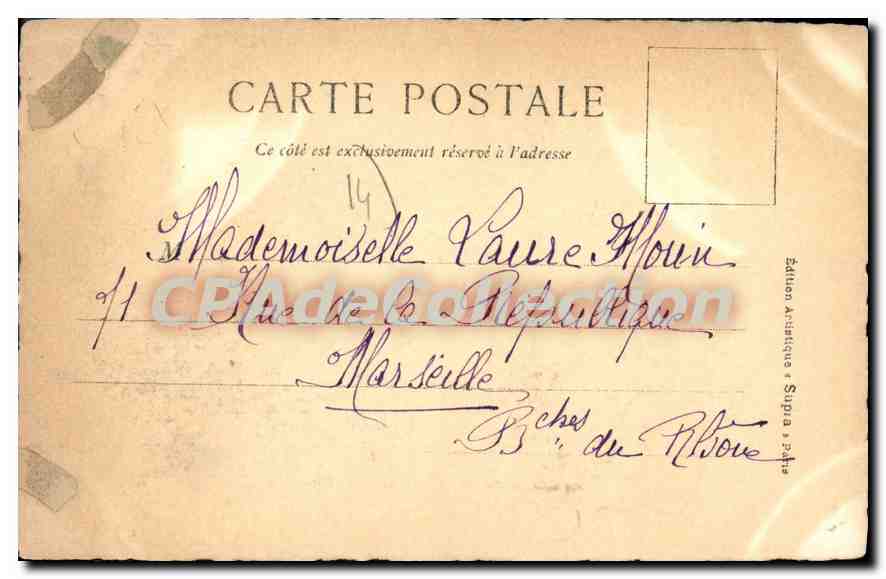 CARTE POSTALE
Ce côté est exclusivement réservé à l'adresse
14
M
Mademoiselle Laure Morin
71 Rue de la République
Marseille
Bches du Rhône
Édition Artistique « Supra » Paris
CPAdeCollection